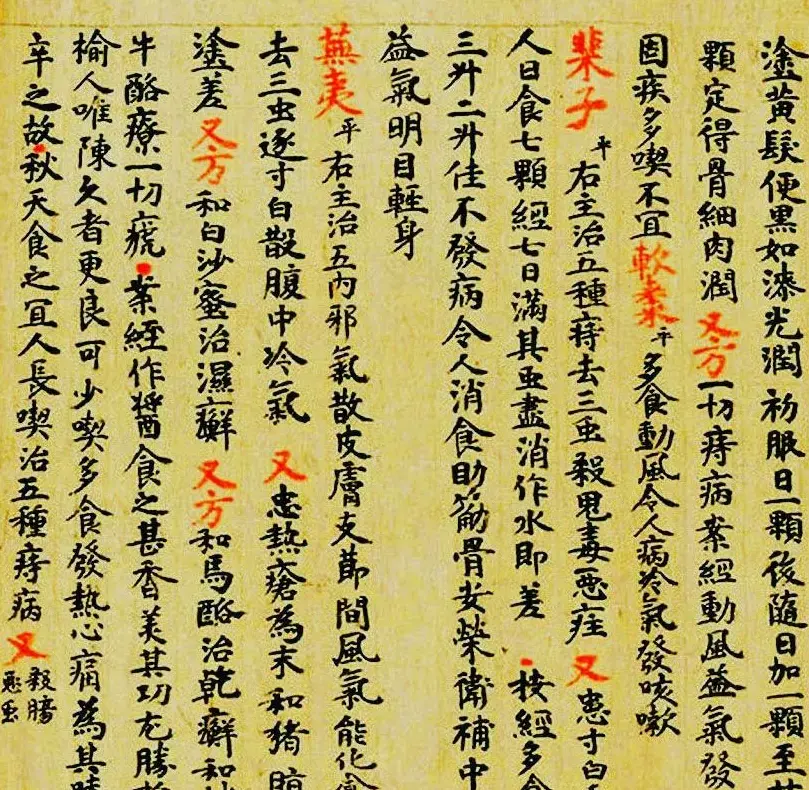 塗黃髮便黑如漆光潤初服日一顆後隨日加一顆至
顆定得骨細肉潤又方一切痔病案經動風益氣發
固疾多喫不宜軟棗平多食動風令人病冷氣發咳嗽
榧子平右主治五種痔去三虫殺鬼毒惡疰又患寸白
人日食七顆經七日滿其虫盡消作水即差按經多食
三升二升佳不發病令人消食助筋骨安榮衛補中
益氣明目輕身
蕪荑平右主治五內邪氣散皮膚支節間風氣能化食
去三虫逐寸白散腹中冷氣又患熱瘡為末和猪脂
塗差又方和白沙蜜治濕癬又方和馬酪治乾癬和
牛酪療一切瘡案經作醬食之甚香美其功尤勝
榆人唯陳久者更良可少喫多食發熱心痛為其
辛之故秋天食之宜人長喫治五種痔病又殺腸
惡虫